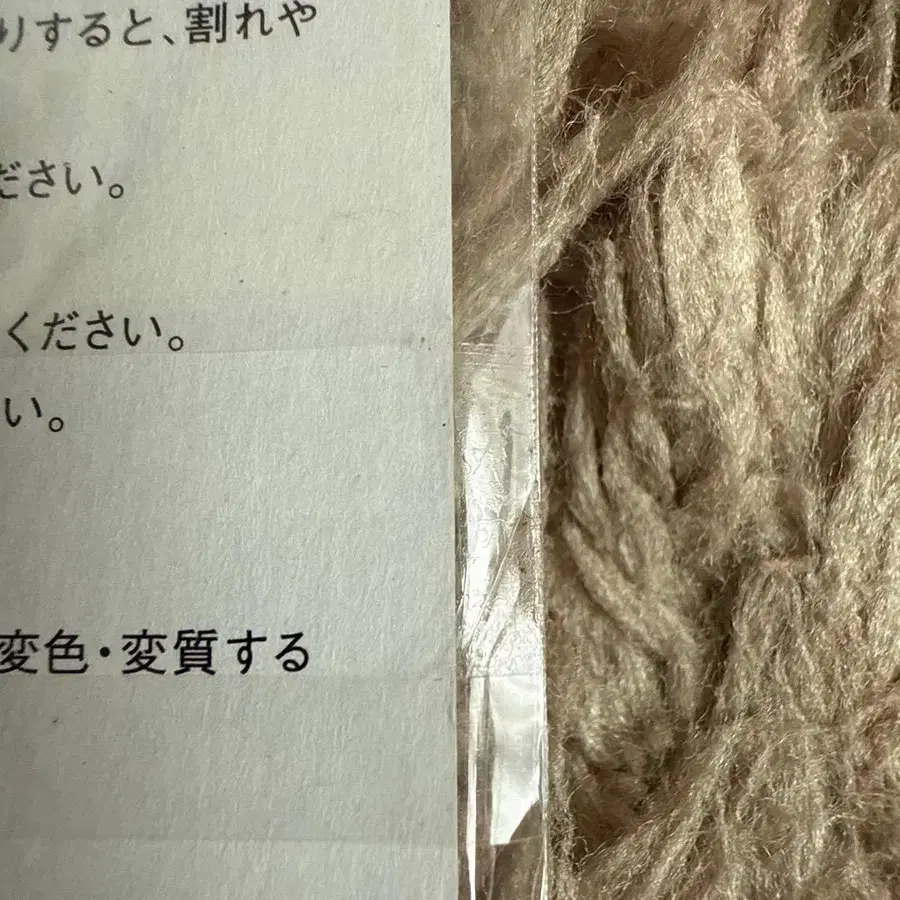 りすると、割れや
ださい。
ください。
い。
変色・変質する